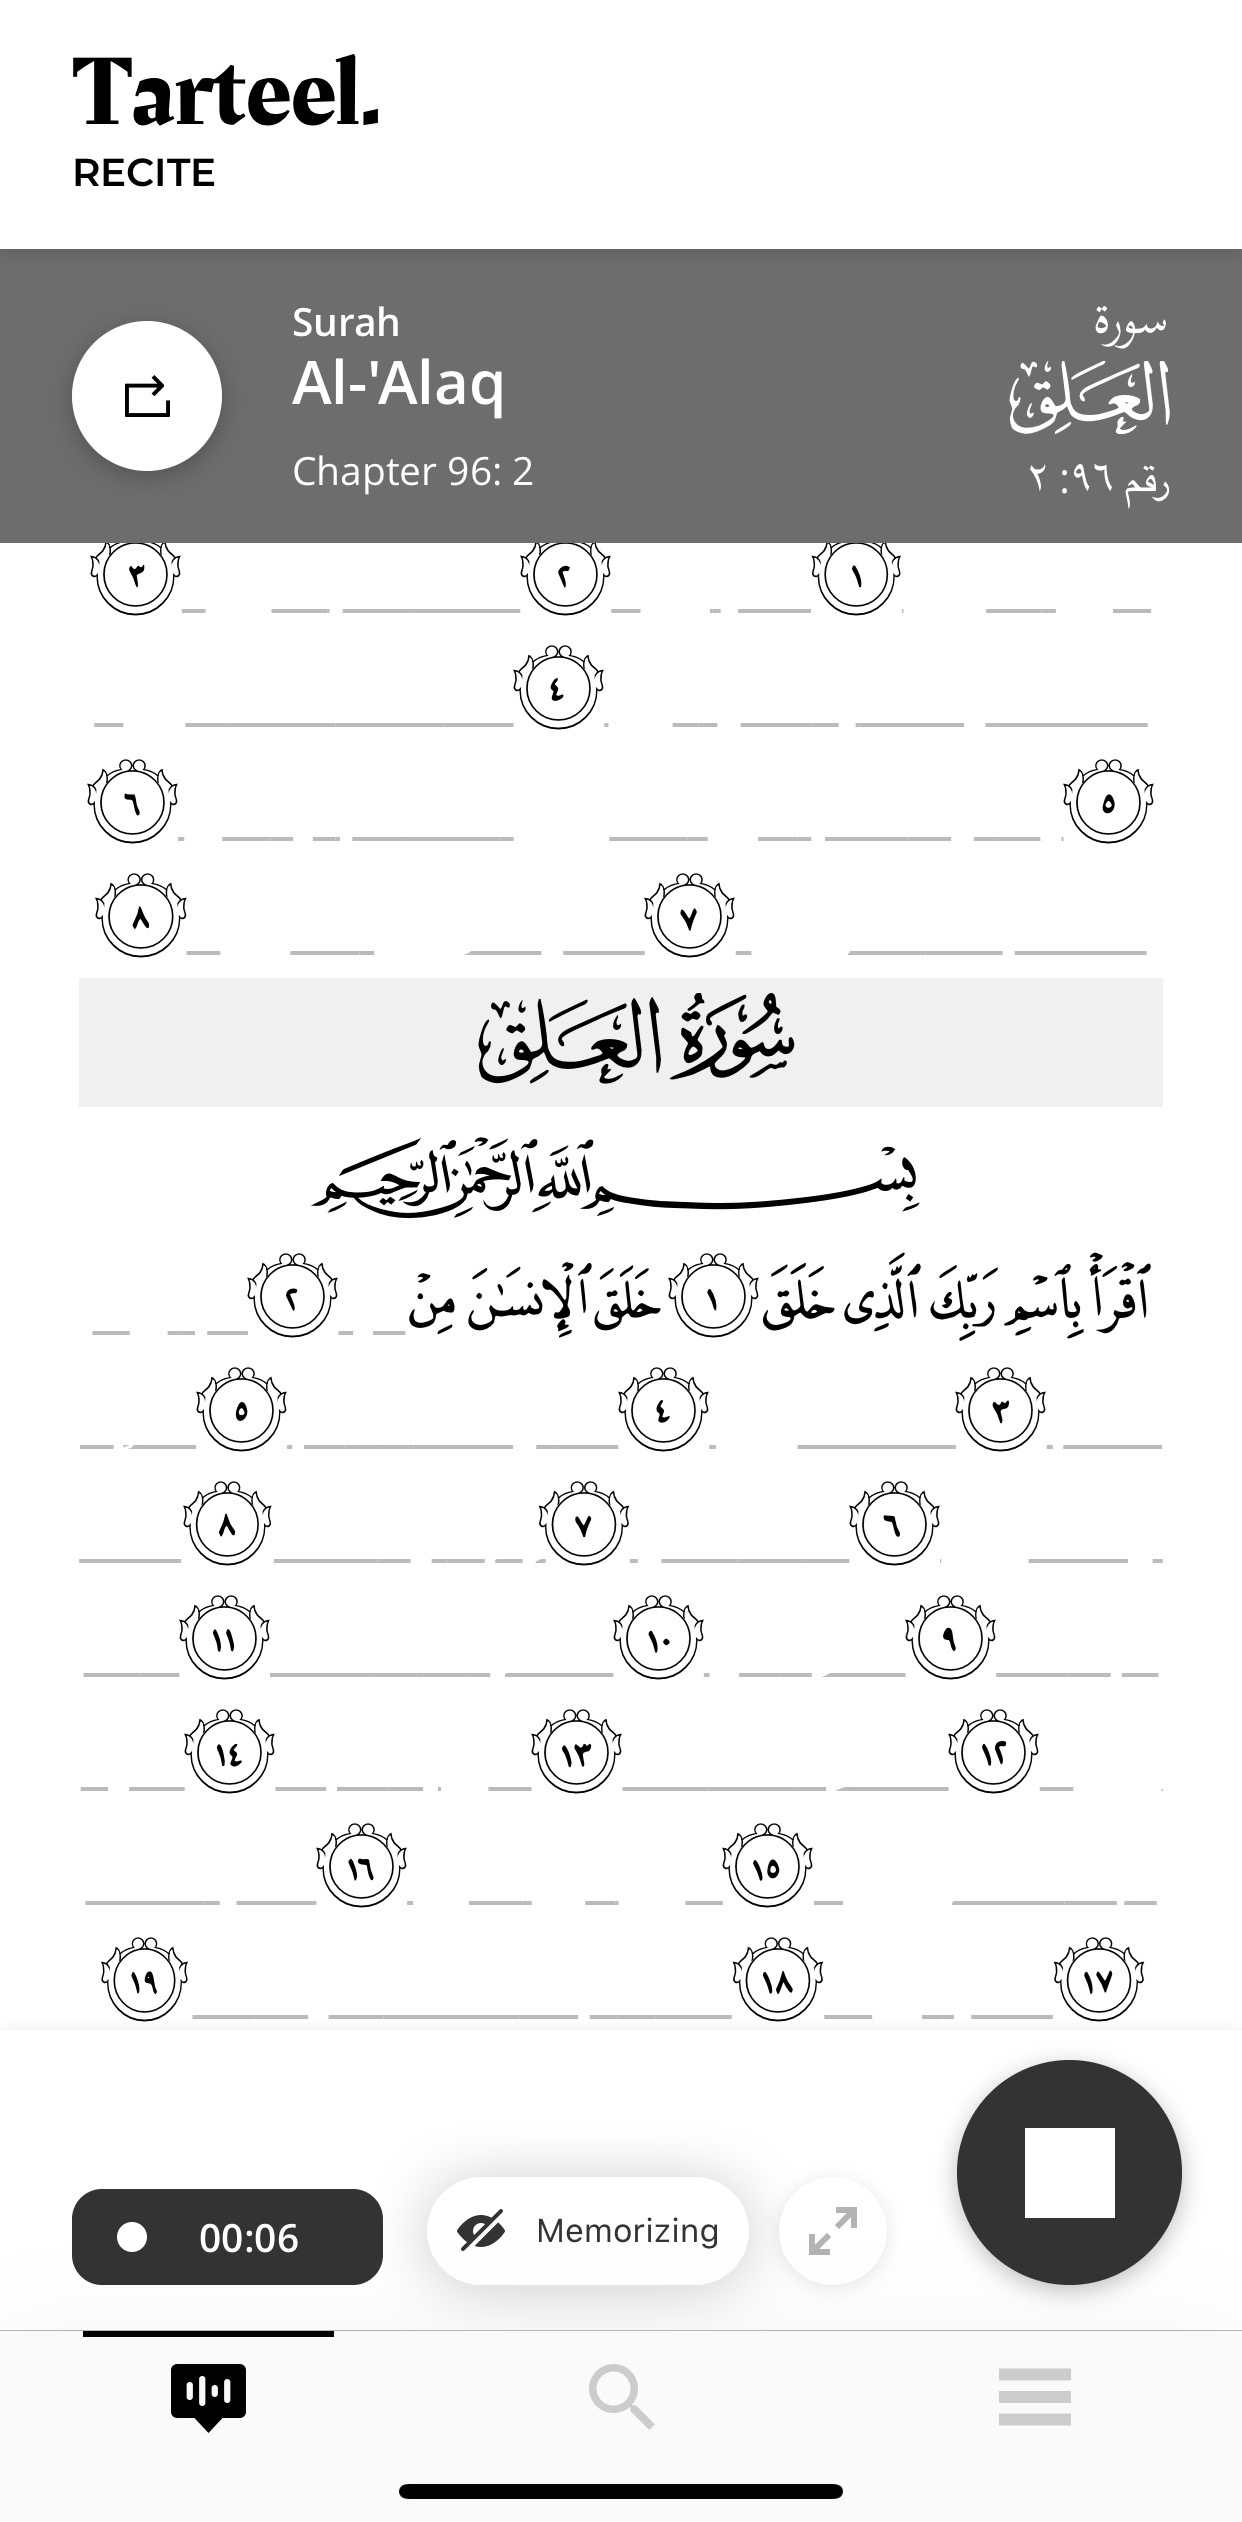 Tarteel.
RECITE
Surah
Al-'Alaq
Chapter 96: 2
سورة
العلق
رقم ٩٦: ٢
١ ٢ ٣
٤
٥ ٦
٧ ٨
سُورَةُ العَلَقِ
بِسْمِ ٱللَّهِ ٱلرَّحْمَٰنِ ٱلرَّحِيمِ
ٱقْرَأْ بِٱسْمِ رَبِّكَ ٱلَّذِى خَلَقَ ١ خَلَقَ ٱلْإِنسَٰنَ مِنْ ٢
٣ ٤ ٥
٦ ٧ ٨
٩ ١٠ ١١
١٢ ١٣ ١٤
١٥ ١٦
١٧ ١٨ ١٩
00:06
Memorizing